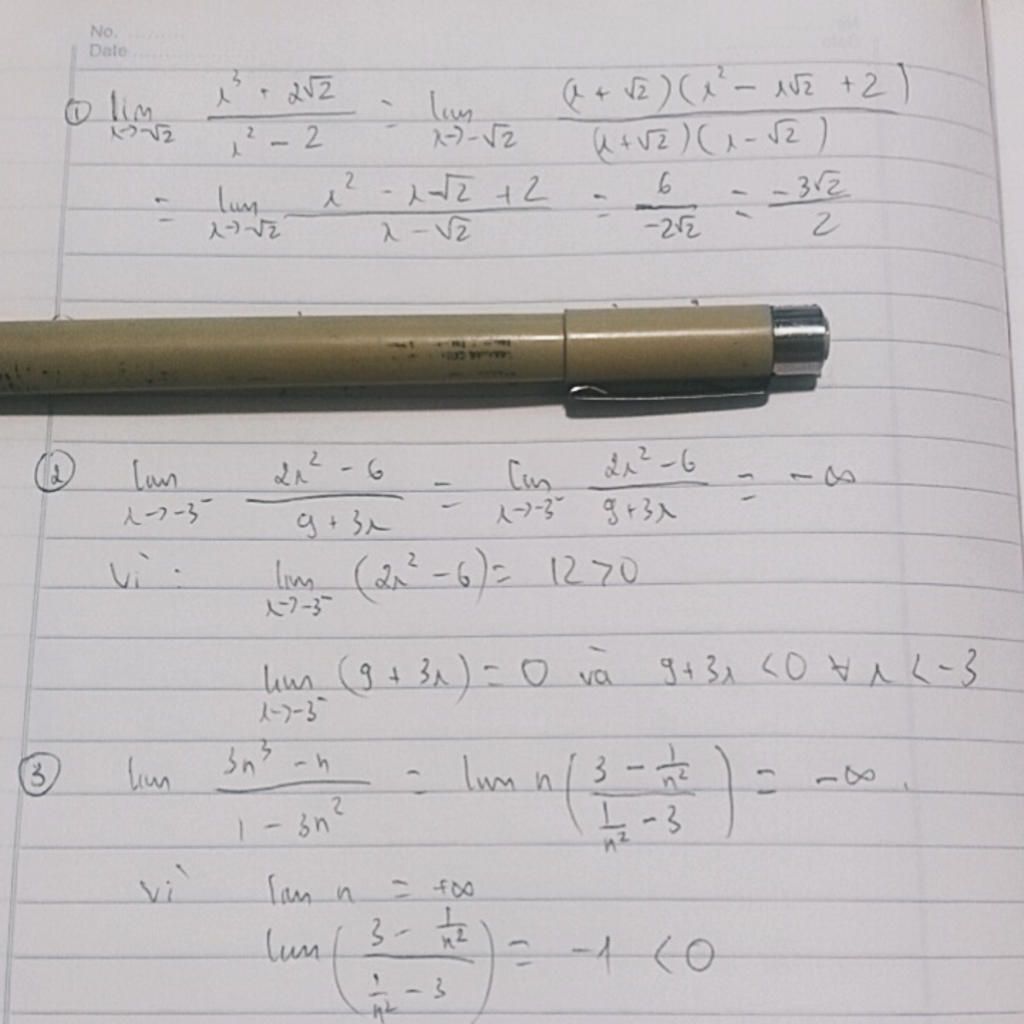 No.
Date
① lim x→-√2 (x³ + 2√2)/(x² - 2) = lim x→-√2 ((x + √2)(x² - x√2 + 2))/((x + √2)(x - √2))
= lim x→-√2 (x² - x√2 + 2)/(x - √2) = 6/(-2√2) = (-3√2)/2
② lim x→-3⁻ (2x² - 6)/(9 + 3x) = lim x→-3⁻ (2x² - 6)/(9 + 3x) = -∞
Vì : lim x→-3⁻ (2x² - 6) = 12 > 0
lim x→-3⁻ (9 + 3x) = 0 và 9 + 3x < 0 ∀ x < -3
③ lim (3n³ - n)/(1 - 3n²) = lim n((3 - 1/n²)/(1/n² - 3)) = -∞.
Vì lim n = +∞
lim((3 - 1/n²)/(1/n² - 3)) = -1 < 0